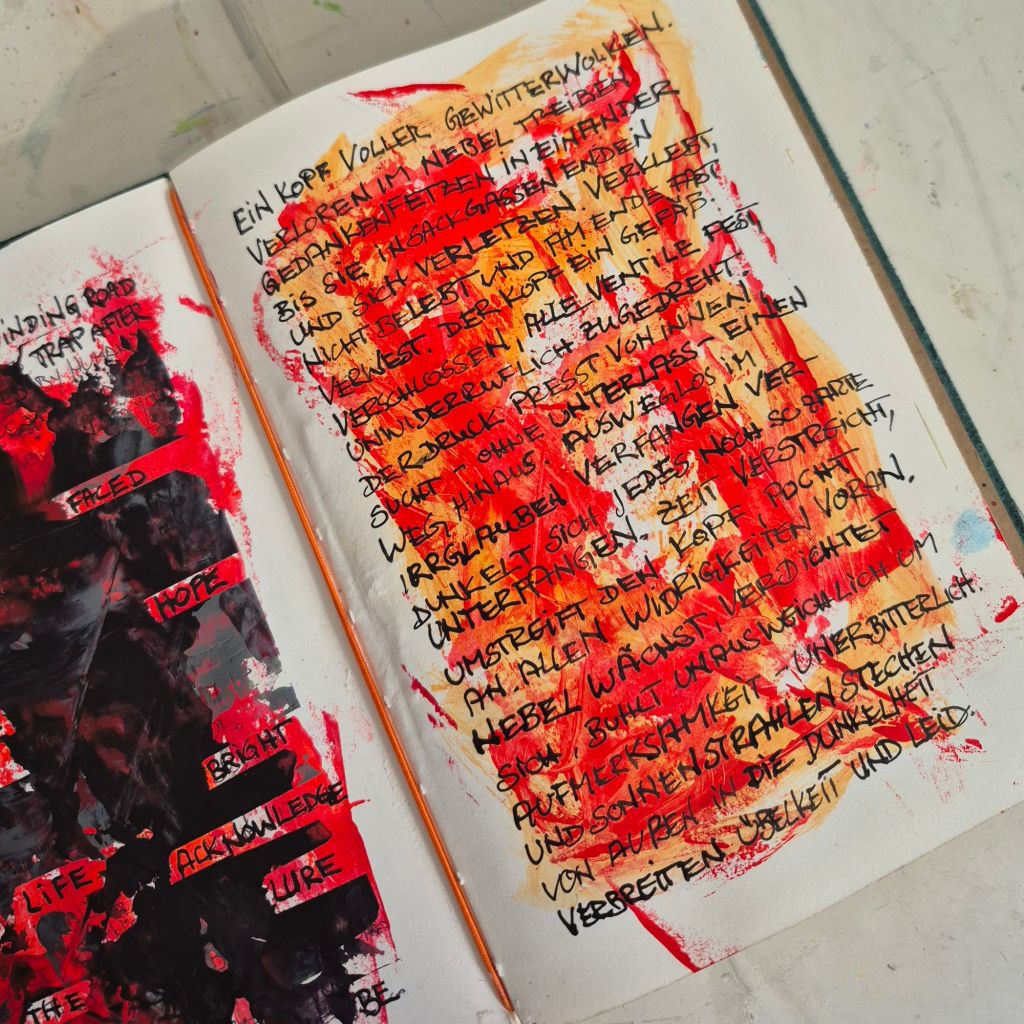 WINDING ROAD
TRAP AFTER
FACED
HOPE
BRIGHT
ACKNOWLEDGE
LIFE
LURE
THE
BE
EIN KOPF VOLLER GEWITTERWOLKEN.
VERLOREN IM NEBEL TREIBEN
GEDANKENFETZEN INEINANDER
BIS SIE IN SACKGASSEN ENDEN
UND SICH VERLETZEN. VERKLEBT,
NICHT BELEBT UND AM ENDE FAST
VERWEST. DER KOPF EIN GEFÄß.
VERSCHLOSSEN ALLE VENTILE FEST
UNWIDERRUFLICH ZUGEDREHT.
DER DRUCK PRESST VON INNEN
SUCHT OHNE UNTERLASS EINEN
WEG HINAUS AUSWEGLOS IM
IRRGLAUBEN VERFANGEN VER-
DUNKELT SICH JEDES NOCH SO ZARTE
UNTERFANGEN. ZEIT VERSTREICHT,
UMSTREIFT DEN KOPF POCHT
AN ALLEN WIDRIGKEITEN VORAN.
NEBEL WÄCHST VERDICHTET
SICH, BUHLT UNAUSWEICHLICH UM
AUFMERKSAMKEIT UNERBITTERLICH.
UND SONNENSTRAHLEN STECHEN
VON AUßEN IN DIE DUNKELHEIT
VERBREITEN ÜBELKEIT UND LEID.